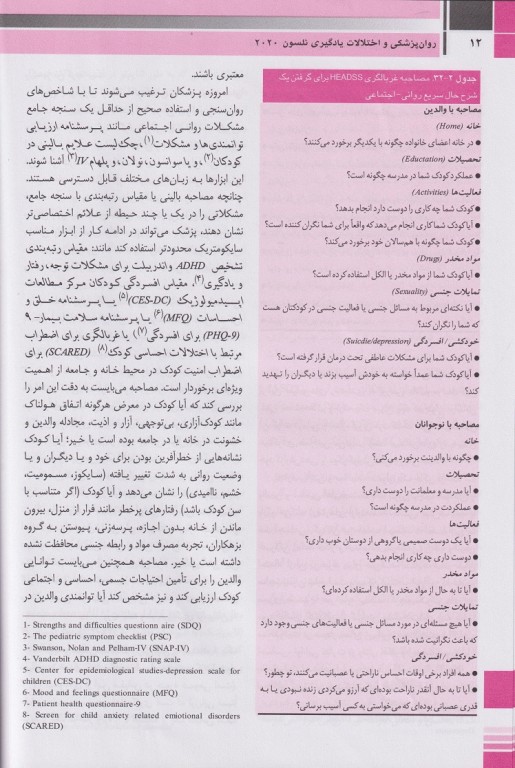 ۱۲
روان‌پزشکی و اختلالات یادگیری نلسون ۲۰۲۰
جدول ۲-۳۲. مصاحبه غربالگری HEADSS برای گرفتن یک
شرح حال سریع روانی – اجتماعی
مصاحبه با والدین
خانه (Home)
● در خانه اعضای خانواده چگونه با یکدیگر برخورد می‌کنند؟
تحصیلات (Eductation)
● عملکرد کودک شما در مدرسه چگونه است؟
فعالیت‌ها (Activities)
● کودک شما چه کاری را دوست دارد انجام بدهد؟
● آیا کودک شما کاری انجام می‌دهد که واقعاً برای شما نگران کننده است؟
● کودک شما چگونه با هم‌سالان خود برخورد می‌کند؟
مواد مخدر (Drug)
● آیا کودک شما از مواد مخدر یا الکل استفاده کرده است؟
تمایلات جنسی (Sexuality)
● آیا نکته‌ای مربوط به مسائل جنسی یا فعالیت جنسی در کودکتان هست
که شما را نگران کند؟
خودکشی / افسردگی (Suicdie/depression)
● آیا کودک شما برای مشکلات عاطفی تحت درمان قرار گرفته است؟
● آیا کودک شما عمداً خواسته به خودش آسیب بزند یا دیگران را تهدید
کند؟
مصاحبه با نوجوانان
خانه
● چگونه با والدینت برخورد می‌کنی؟
تحصیلات
● آیا مدرسه و معلمانت را دوست داری؟
● عملکردت در مدرسه چگونه است؟
فعالیت‌ها
● آیا یک دوست صمیمی یا گروهی از دوستان خوب داری؟
● دوست داری چه کاری انجام بدهی؟
مواد مخدر
● آیا تا به حال از مواد مخدر یا الکل استفاده کرده‌ای؟
تمایلات جنسی
● آیا هیچ مسئله‌ای در مورد مسائل جنسی یا فعالیت‌های جنسی وجود دارد
که باعث نگرانیت شده باشد؟
خودکشی / افسردگی
● همه افراد برخی اوقات احساس ناراحتی یا عصبانیت می‌کنند، تو چطور؟
● آیا تا به حال آنقدر ناراحت بوده‌ای که آرزو می‌کردی زنده نبودی یا به
قدری عصبانی بوده‌ای که می‌خواستی به کسی آسیب برسانی؟
معتبری باشند.
امروزه پزشکان ترغیب می‌شوند تا با شاخص‌های
روان‌سنجی و استفاده صحیح از حداقل یک سنجه جامع
مشکلات روانی اجتماعی مانند پرسشنامه ارزیابی
توانمندی‌ها و مشکلات(۱)، چک‌لیست علایم بالینی در
کودکان(۲)، و یا سوانسون، نولان، و پلهام IV(۳) آشنا شوند.
این ابزارها به زبان‌های مختلف قابل دسترسی هستند.
چنانچه مصاحبه بالینی یا مقیاس رتبه‌بندی با سنجه جامع،
مشکلاتی را در یک یا چند حیطه از علائم اختصاصی‌تر
نشان دهند، پزشک می‌تواند در ادامه کار از ابزار مناسب
سایکومتریک محدودتر استفاده کند مانند: مقیاس رتبه‌بندی
تشخیص ADHD واندربیلت برای مشکلات توجه، رفتار
و یادگیری(۴)، مقیاس افسردگی کودکان مرکز مطالعات
اپیدمیولوژیک (CES-DC)(۵) یا پرسشنامه خلق و
احساسات (MFQ)(۶) یا پرسشنامه سلامت بیمار- ۹
(PHQ-9) برای افسردگی(۷) یا غربالگری برای اضطراب
مرتبط با اختلالات احساسی کودک(۸) (SCARED) برای
اضطراب امنیت کودک در محیط خانه و جامعه از اهمیت
ویژه‌ای برخوردار است. مصاحبه می‌بایست به دقت این امر را
بررسی کند که آیا کودک در معرض هرگونه اتفاق هولناک
مانند کودک‌آزاری، بی‌توجهی، آزار و اذیت، مجادله والدین و
خشونت در خانه یا در جامعه بوده است یا خیر؛ آیا کودک
نشانه‌هایی از خطرآفرین بودن برای خود و یا دیگران و یا
وضعیت روانی به شدت تغییر یافته (سایکوز، مسمومیت،
خشم، ناامیدی) را نشان می‌دهد و آیا کودک (اگر متناسب با
سن کودک باشد) رفتارهای پرخطر مانند فرار از منزل، بیرون
ماندن از خانه بدون اجازه، پرسه‌زنی، پیوستن به گروه
بزهکاران، تجربه مصرف مواد و رابطه جنسی محافظت نشده
داشته است یا خیر. مصاحبه همچنین می‌بایست توانایی
والدین را برای تأمین احتیاجات جسمی، احساسی و اجتماعی
کودک ارزیابی کند و نیز مشخص کند آیا توانمندی والدین در
1- Strengths and difficulties questionn aire (SDQ)
2- The pediatric symptom checklist (PSC)
3- Swanson, Nolan and Pelham-IV (SNAP-IV)
4- Vanderbilt ADHD diagnostic rating scale
5- Center for epidemiological studies-depression scale for
children (CES-DC)
6- Mood and feelings questionnaire (MFQ)
7- Patient health questionnaire-9
8- Screen for child anxiety related emiotional disorders
(SCARED)